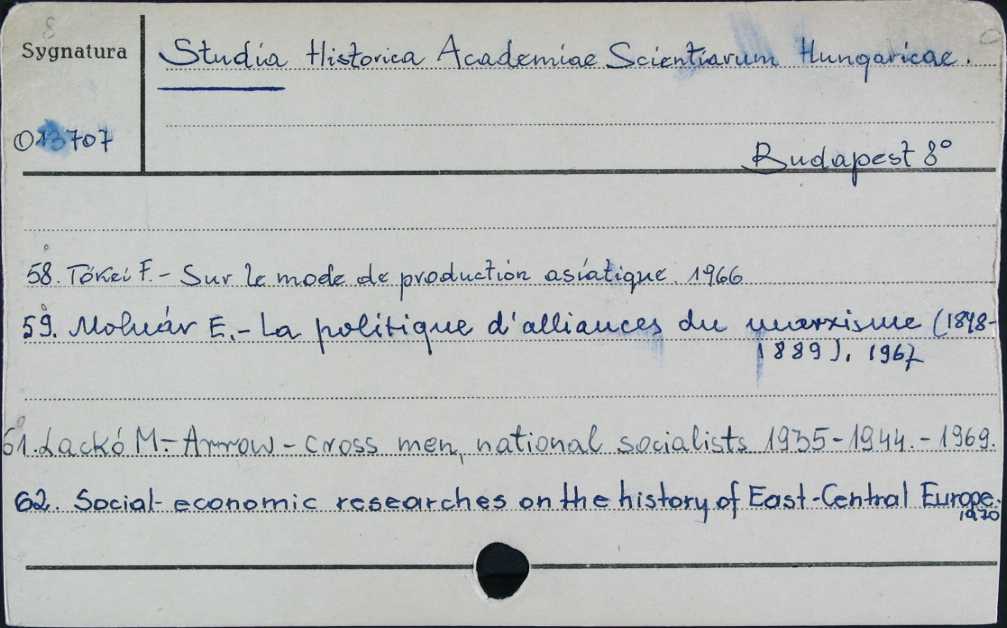 8
Sygnatura
Studia Historica Academiae Scientiarum Hungaricae.
O13707
Budapest 8°
58. Tőkei F. - Sur le mode de production asiatique. 1966
59. Molnár E. - La politique d'alliances du marxisme (1848-
1889). 1967
61. Lackó M. - Arrow-cross men, national socialists 1935-1944. - 1969.
62. Social-economic researches on the history of East-Central Europe.
1970